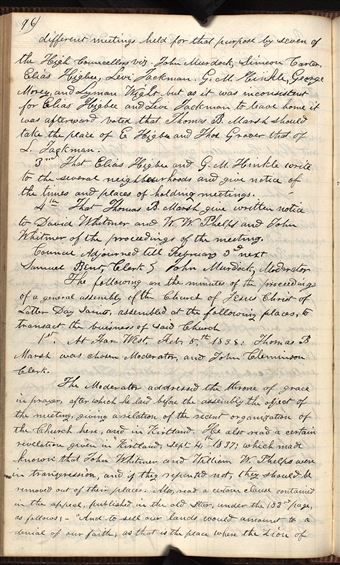 94
different meetings held for that purpose by seven of
the High Councellors viz. John Murdock, Simeon Carter,
Elias Higbee, Levi Jackman, G. M. Hinkle, George
Morey, and Lyman Wight but as it was inconsistent
for Elias Higbee and Levi Jackman to leave home it
was afterward voted that Thomas B. Marsh should
take the place of E Higbee and Thos Grover that of
L. Jackman.
3rd That Elias Higbee and G. M. Hinkle write
to the several neighbourhoods and give notice of
the times and places of holding meetings.
4th That Thomas B. Marsh give written notice
to David Whitmer and W. W. Phelps and John
Whitmer of the proceedings of the meeting.
Council Adjourned till February 3d next
Samuel Bent, Clerk John Murdick, Moderator
The following are the minutes of the proceedings
of a general assembly of the Church of Jesus Christ of
Latter Day Saints, assembled at the following places, to
transact the business of said Church
1st. At Far West, Feb. 5th 1838: Thomas B
Marsh was chosen Moderator, and John Cleminson
Clerk.
The Moderator addressed the throne of grace
in prayer, after which he laid before the assembly the object of
the meeting, giving a relation of the recent organization of
the Church here, and in Kirtland. He also read a certain
revelation given in Kirtland, Sept. 4th 1837; which made
known that John Whitmer and William W. Phelps were
in transgression, and if they repented not, they should be
removed out of their places. Also, read a certain clause contained
in the appeal, published in the old Star, under the 183d page,
as follows; "And to sell our lands would amount to a
denial of our faith, as that is the place where the Zion of